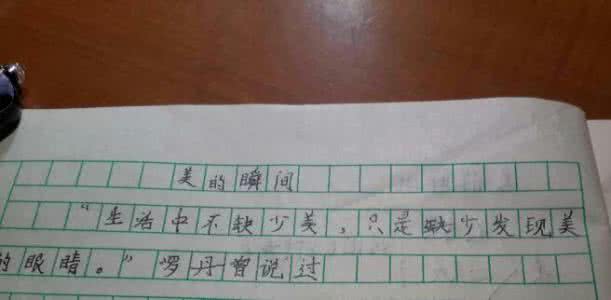 美的瞬间
“生活中不缺少美，只是缺少发现美
的眼睛。”罗丹曾说过